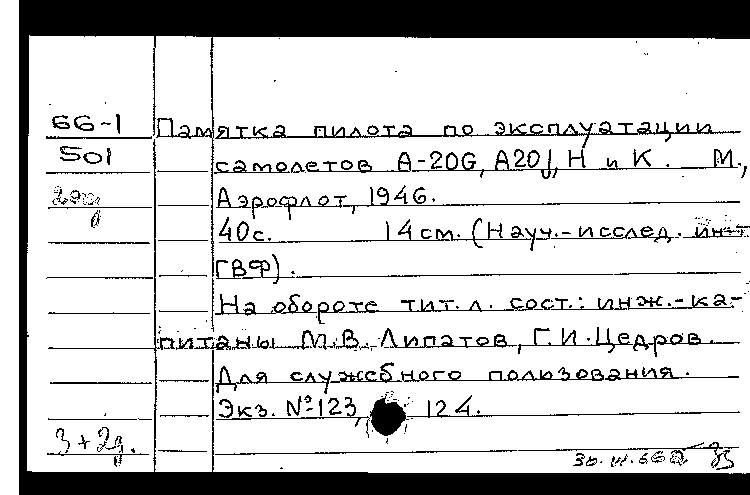 66-1 Памятка пилота по эксплуатации
501 самолетов А-20G, А20J, Н и К. М.,
Аэрофлот, 1946.
40с. 14см. (Науч.-исслед. ин-т
ГВФ).
На обороте тит. л. сост.: инж.-ка-
питаны М.В. Липатов, Г.И. Цедров.
Для служебного пользования.
Экз. №123, 124.
3+2д.